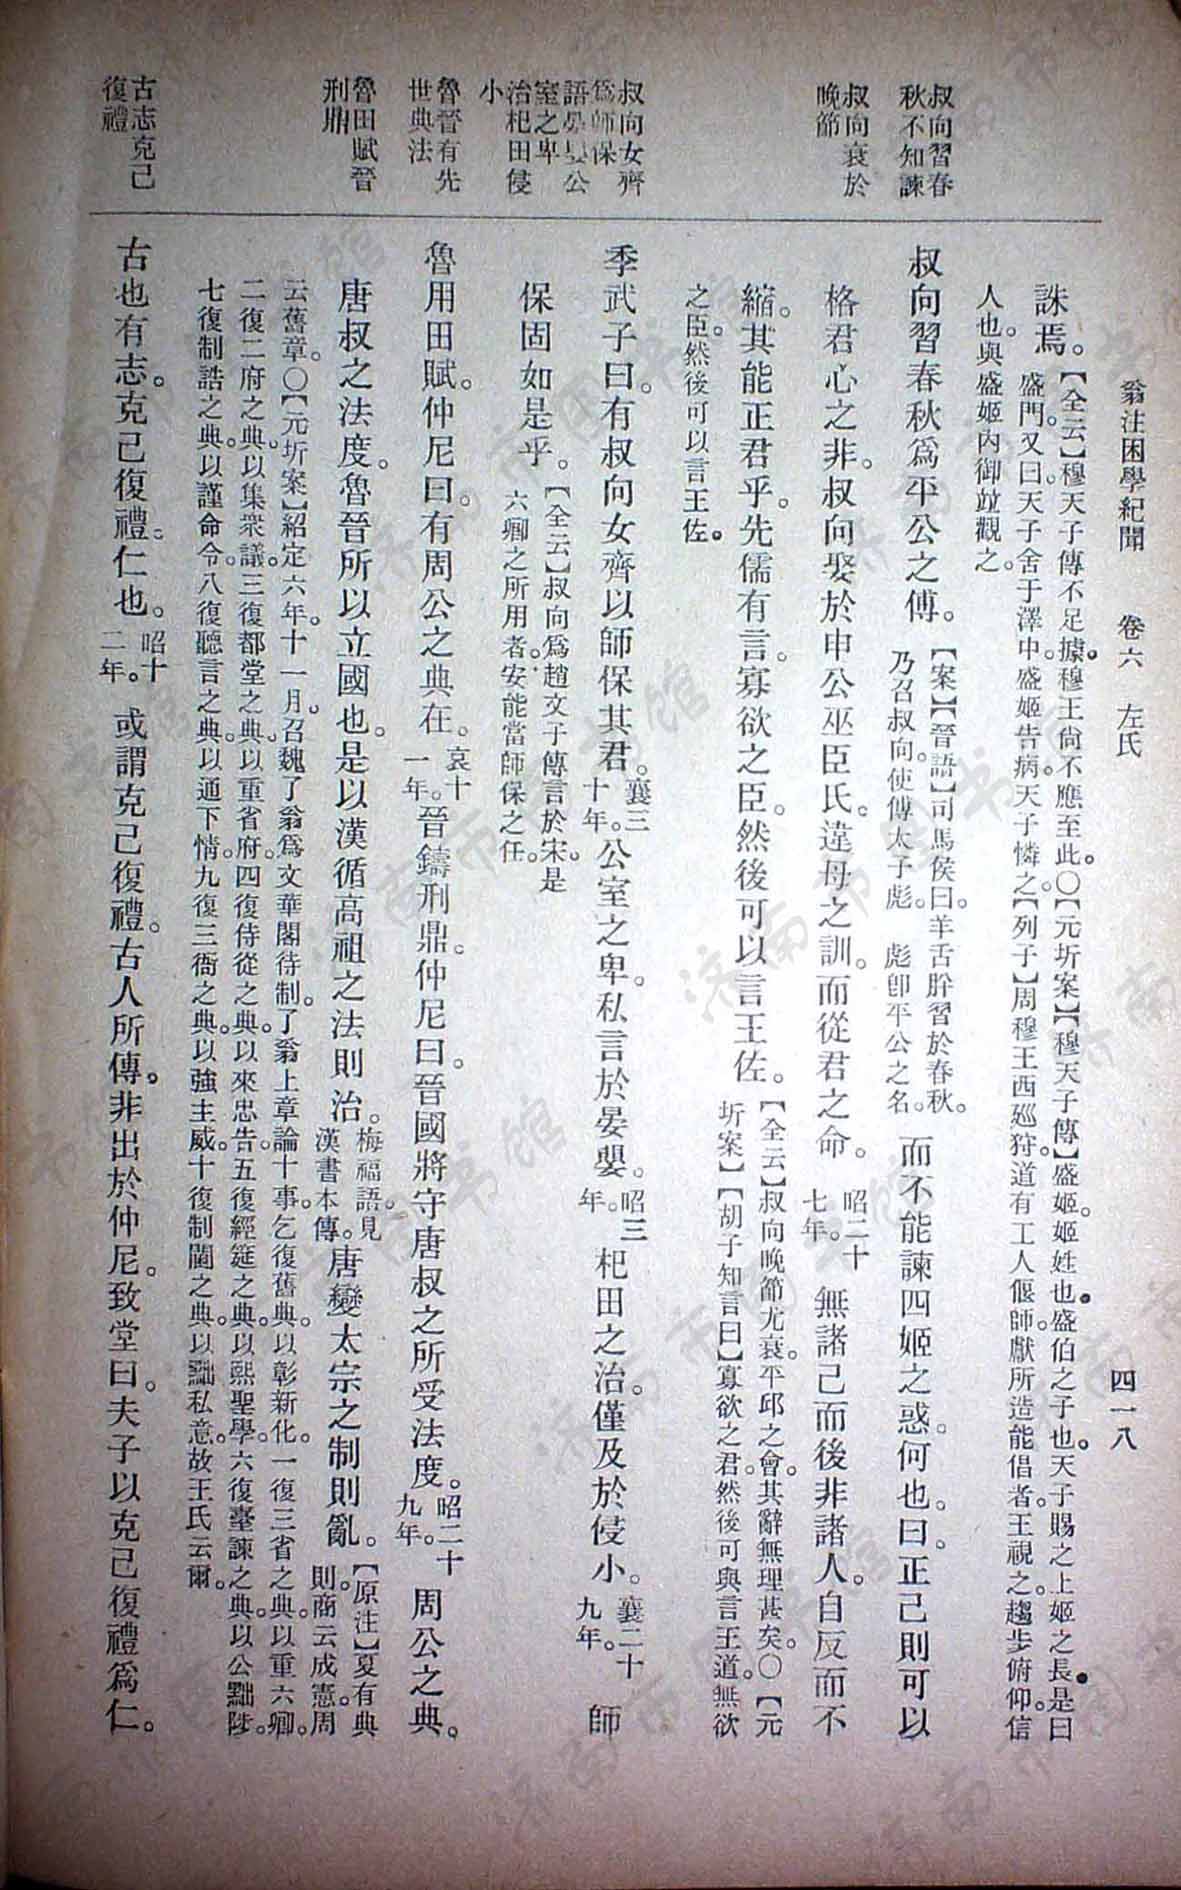 翁注困學紀聞　卷六　左氏　四一八
誅焉。【全云】穆天子傳不足據。穆王尙不應至此。〇【元圻案】【穆天子傳】盛姬。姬姓也。盛伯之子也。天子賜之上姬之長。是曰
盛門。又曰。天子舍于澤中。盛姬告病。天子憐之。【列子】周穆王西廵狩。道有工人偃師。獻所造能倡者。王視之。趨步俯仰。信
人也。與盛姬內御竝觀之。
叔向習春
秋不知諫
叔向習春秋爲平公之傅。【案】【晉語】司馬侯曰。羊舌肸習於春秋。
乃召叔向。使傅太子彪。　彪卽平公之名。
而不能諫四姬之惑。何也。曰。正己則可以
叔向衰於
晚節
格君心之非。叔向娶於申公巫臣氏。違母之訓。而從君之命。昭二十
七年。
無諸己而後非諸人。自反而不
縮。其能正君乎。先儒有言。寡欲之臣。然後可以言王佐。【全云】叔向晚節尤衰。平邱之會。其辭無理甚矣。〇【元
圻案】【胡子知言曰】寡欲之君。然後可與言王道。無欲
之臣。然後可以言王佐。
叔向女齊
爲師保
語晏嬰公
室之卑
治杞田侵
小
季武子曰。有叔向女齊以師保其君。襄三
十年。
公室之卑。私言於晏嬰。昭三
年。
杞田之治。僅及於侵小。襄二十
九年。
師
保固如是乎。【全云】叔向爲趙文子傳言於宋。是
六卿之所用者。安能當師保之任。
魯晉有先
世典法
魯用田賦。仲尼曰。有周公之典在。哀十
一年。
晉鑄刑鼎。仲尼曰。晉國將守唐叔之所受法度。昭二十
九年。
周公之典。
魯田賦晉
刑鼎
唐叔之法度。魯晉所以立國也。是以漢循高祖之法則治。梅福語。見
漢書本傳。
唐變太宗之制則亂。【原注】夏有典
則。商云成憲。周
云舊章。〇【元圻案】紹定六年。十一月。召魏了翁爲文華閣待制。了翁上章論十事。乞復舊典。以彰新化。一復三省之典。以重六卿。
二復二府之典。以集衆議。三復都堂之典。以重省府。四復侍從之典。以來忠告。五復經筵之典。以熙聖學。六復臺諫之典。以公黜陟。
七復制誥之典。以謹命令。八復聽言之典。以通下情。九復三衙之典。以強主威。十復制閫之典。以黜私意。故王氏云爾。
古志克己
復禮
古也有志。克己復禮。仁也。昭十
二年。
或謂克己復禮。古人所傳。非出於仲尼。致堂曰。夫子以克己復禮爲仁。